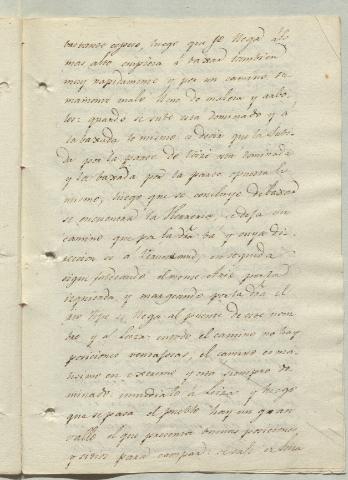 bastante espeso, luego que se llega a lo
mas alto empieza a baxar tambien
muy rapidamente y por un camino su-
mamente malo lleno de maleza y arbo-
les: quando se sube esta dominado y a
la baxada lo mismo, es decir que la subi-
da por la parte de está dominada
y la baxada por la parte opuesta lo
mismo, luego que se concluye de baxar
se encuentra la Herreria, se dexa un
camino que por la dra. va y cuya di-
reccion es a en seguida
sigue faldeando el monte por la
izquierda y margeando por la dra. el
rio se llega al puente de este nom-
bre y a Leiza: en todo el camino no hay
posiciones ventajosas, el camino es ma-
lisimo en extremo y está siempre do-
minado inmediato a Leiza y luego
que se pasa el pueblo hay un gran
valle el que presenta buenas posiciones
y sitios para campar: se sale de Leiza